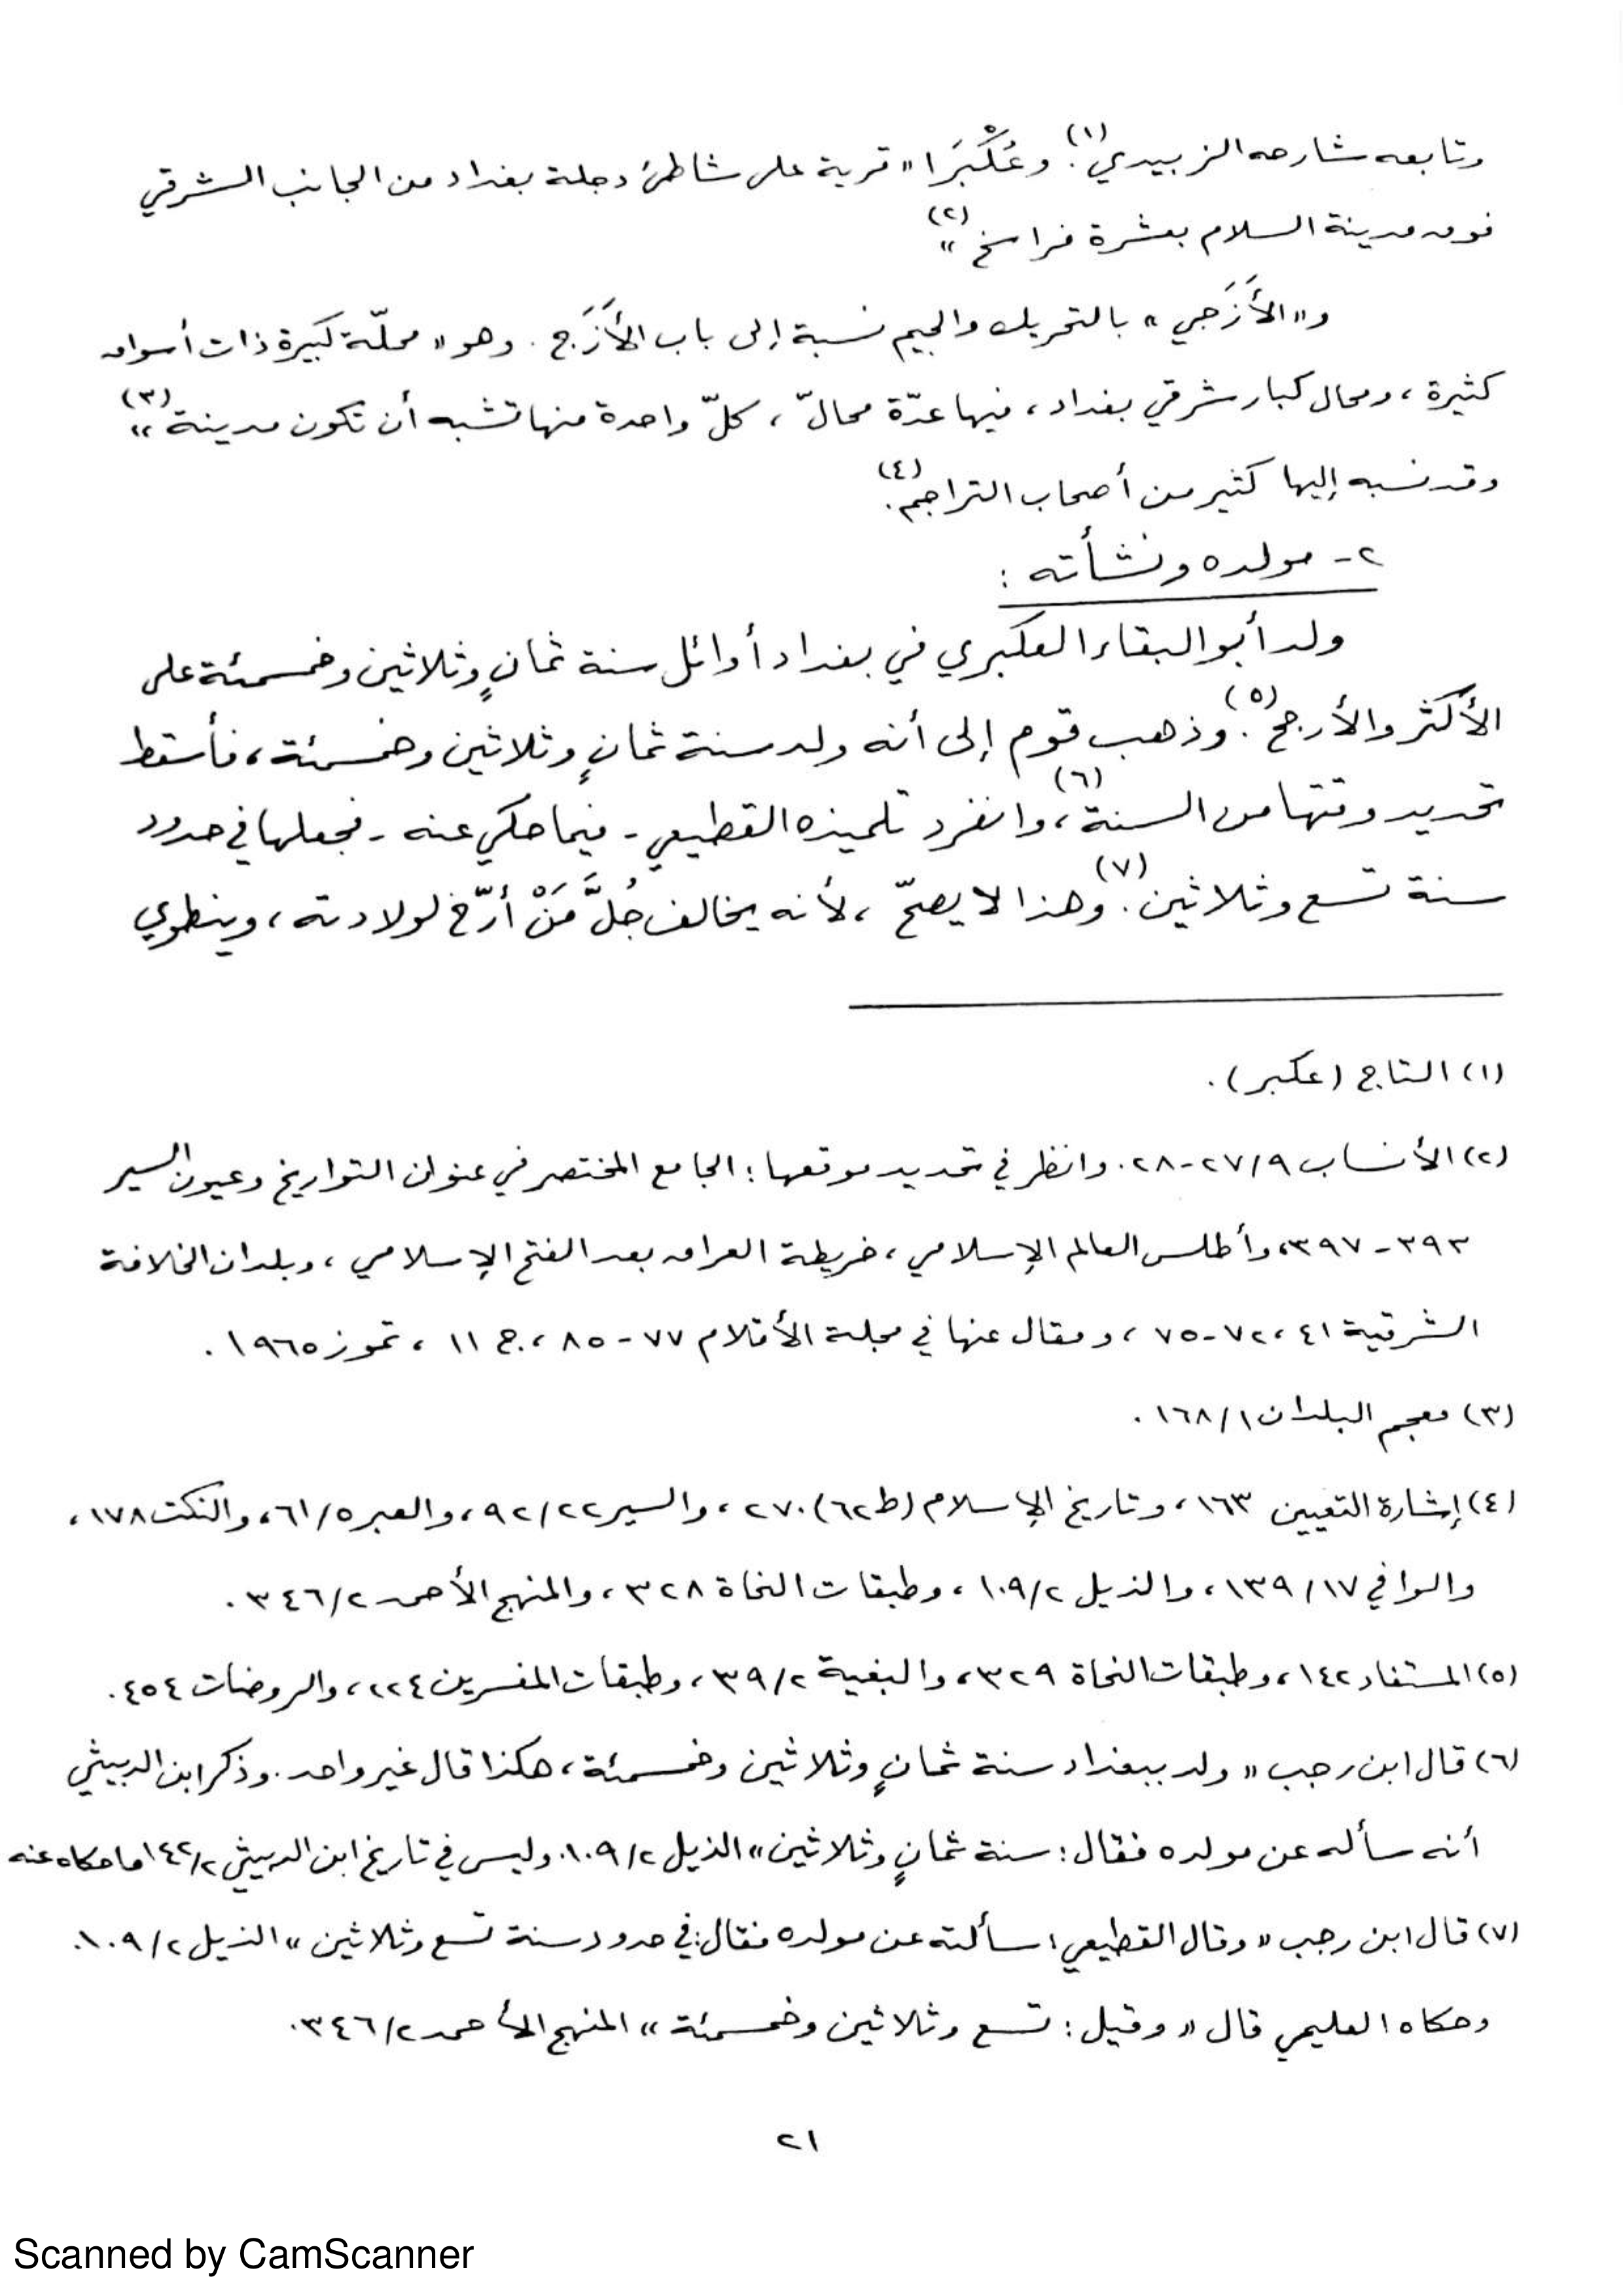 وتابعه شارحه الزبيدي(١). وعُكْبَرَا « قرية على شاطئ دجلة بغداد من الجانب الشرقي
فوق مدينة السلام بعشرة فراسخ »(٢)
و« الأَزَجي » بالتحريك والجيم نسبة إلى باب الأَزَج . وهو « محلّة كبيرة ذات أسواق
كثيرة ، ومحال كبار شرقي بغداد ، فيها عدّة محالّ ، كلّ واحدة منها تشبه أن تكون مدينة »(٣)
وقد نسبه إليها كثير من أصحاب التراجم(٤).
٢- مولده ونشأته :
ولد أبو البقاء العكبري في بغداد أوائل سنة ثمانٍ وثلاثين وخمسمئة على
الأكثر والأرجح(٥). وذهب قوم إلى أنه ولد سنة ثمانٍ وثلاثين وخمسمئة ، فأسقط
تحديد وقتها من السنة(٦)، وانفرد تلميذه القطيعي - فيما حكي عنه - فجعلها في حدود
سنة تسع وثلاثين(٧). وهذا لا يصحّ ، لأنه يخالف جُلَّ مَنْ أرّخ لولادته ، وينطوي
(١) التاج (عكبر) .
(٢) الأنساب ٢٧/٩-٢٨. وانظر في تحديد موقعها : الجامع المختصر في عنوان التواريخ وعيون السير
٣٩٣-٣٩٧، وأطلس العالم الإسلامي ، خريطة العراق بعد الفتح الإسلامي ، وبلدان الخلافة
الشرقية ٤١ ، ٧٢-٧٥ ، ومقال عنها في مجلة الأقلام ٧٧-٨٥ ، ج ١١ ، تموز ١٩٦٥ .
(٣) معجم البلدان ١٦٨/١ .
(٤) إشارة التعيين ١٦٣ ، وتاريخ الإسلام (ط٦٢) ٢٧٠ ، والسير ٩٢/٢٢ ، والعبر ٦١/٥ ، والنكت ١٧٨ ،
والوافي ١٣٩/١٧ ، والذيل ١٠٩/٢ ، وطبقات النحاة ٣٢٨ ، والمنهج الأحمد ٣٤٦/٢ .
(٥) المستفاد ١٤٢ ، وطبقات النحاة ٣٢٩ ، والبغية ٣٩/٢ ، وطبقات المفسرين ٢٢٤ ، والروضات ٤٥٤ .
(٦) قال ابن رجب « ولد ببغداد سنة ثمانٍ وثلاثين وخمسمئة ، هكذا قال غير واحد . وذكر ابن الدبيثي
أنه سأله عن مولده فقال : سنة ثمانٍ وثلاثين » الذيل ١٠٩/٢. وليس في تاريخ ابن الدبيثي ١٤٢/٢ ما حكاه عنه
(٧) قال ابن رجب « وقال القطيعي : سألته عن مولده فقال : في حدود سنة تسع وثلاثين » الذيل ١٠٩/٢.
وحكاه العليمي قال « وقيل : تسع وثلاثين وخمسمئة » المنهج الأحمد ٣٤٦/٢ .
٢١
Scanned by CamScanner